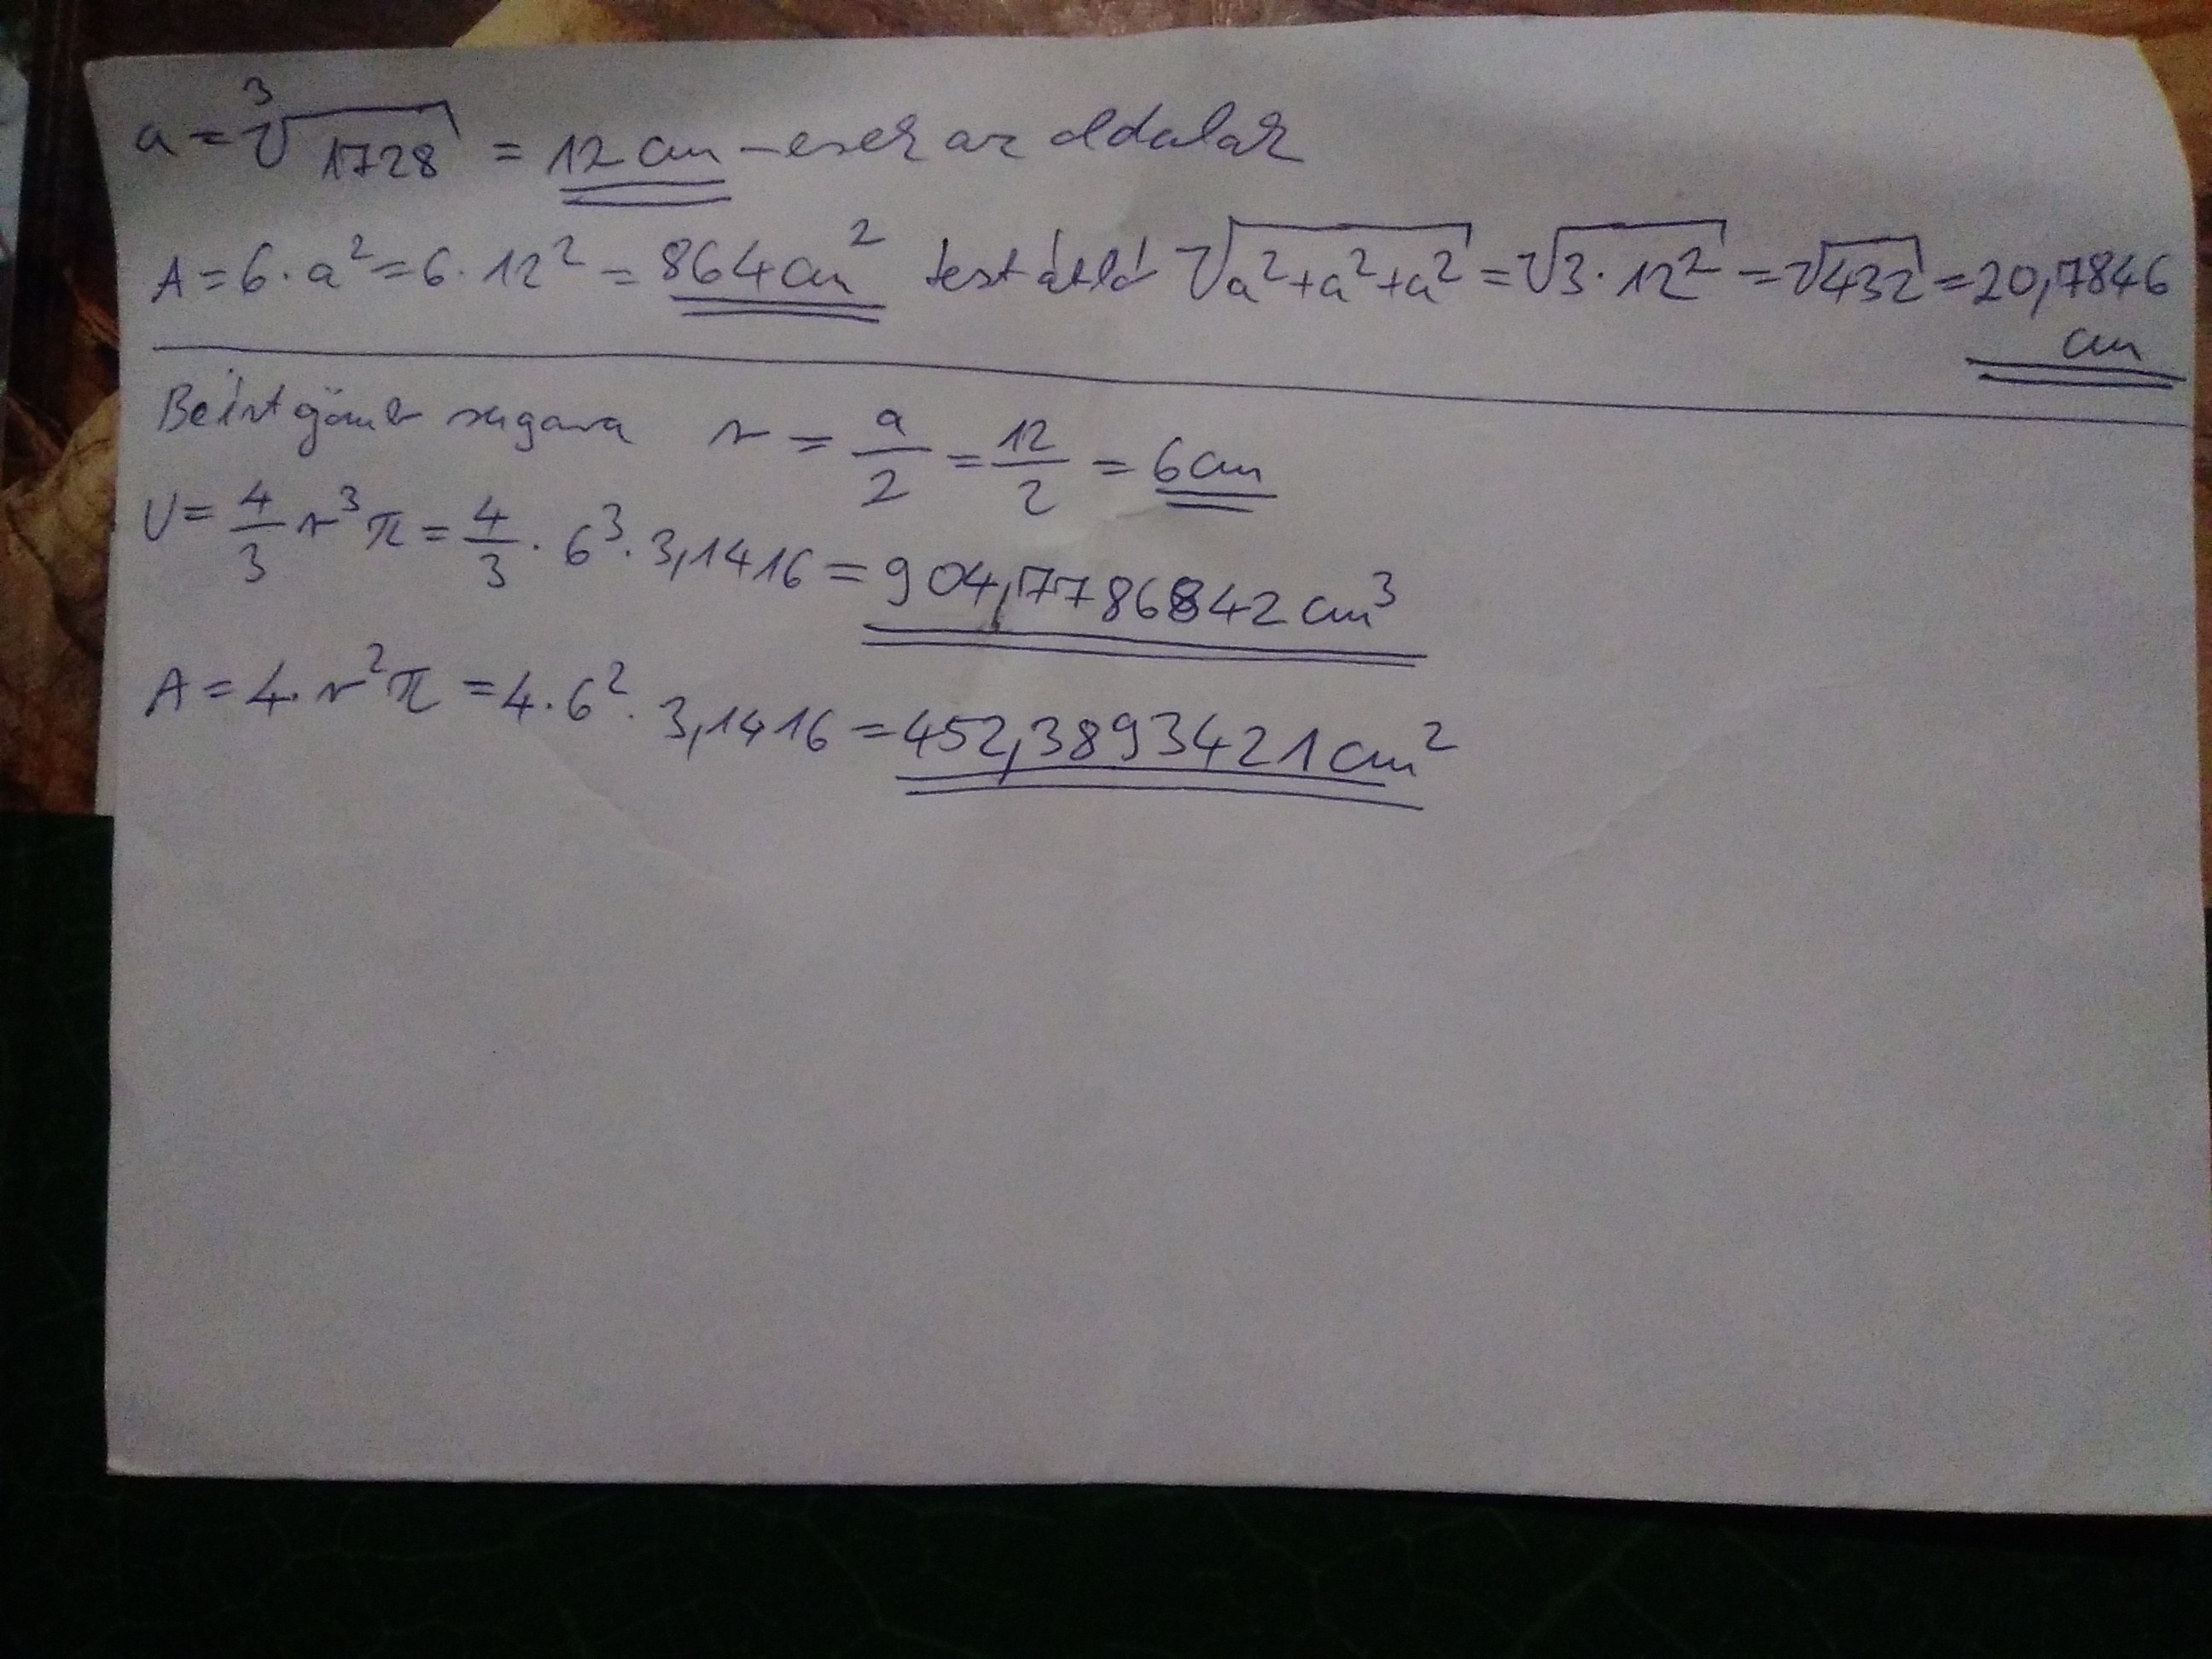 a = ∛1728 = 12 cm-esek az oldalak
A = 6 · a² = 6 · 12² = 864 cm² testátló √a²+a²+a² = √3·12² = √432 = 20,7846 cm
Beírt gömb sugara r = a/2 = 12/2 = 6 cm
V = 4/3 r³π = 4/3 · 6³ · 3,1416 = 904,7786842 cm³
A = 4·r²π = 4·6²·3,1416 = 452,3893421 cm²